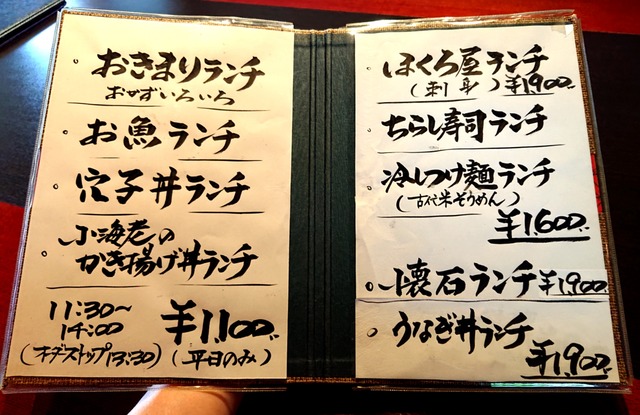 おきまりランチ
おかずいろいろ
お魚ランチ
穴子丼ランチ
小海老の
かき揚げ丼ランチ
11:30〜
14:00
(オーダーストップ13:30)
¥1,100.
(平日のみ)
ほくろ屋ランチ
(刺身) ¥1,900.
ちらし寿司ランチ
冷しつけ麺ランチ
(古代米そうめん)
¥1,600.
小懐石ランチ ¥1,900.
うなぎ丼ランチ
¥1,900.